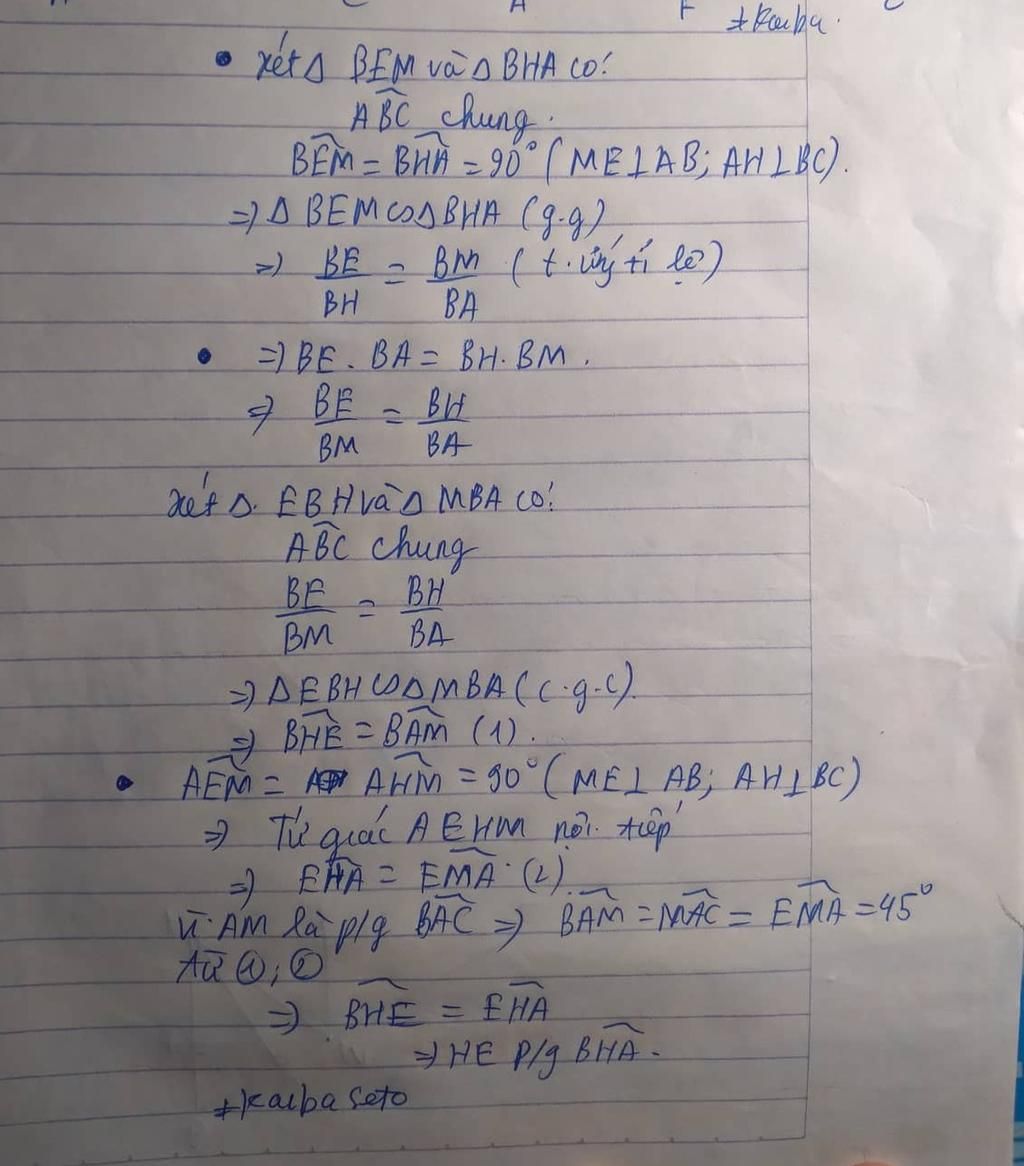 A F C
+Kaiba.
• xét Δ BEM và Δ BHA có:
ABC chung.
BEM = BHA = 90° (ME⊥AB; AH⊥BC).
=> Δ BEM ∽ Δ BHA (g.g)
=> BE/BH = BM/BA (t.ứng tỉ lệ)
• => BE . BA = BH . BM .
=> BE/BM = BH/BA
xét Δ. EBH và Δ MBA có:
ABC chung
BE/BM = BH/BA
=> Δ EBH ∽ Δ MBA (c.g.c).
=> BHE = BAM (1).
• AEM = AHM = 90° (ME⊥ AB; AH⊥BC)
=> Tứ giác AEHM nội tiếp
=> EHA = EMA (2)
Vì AM là p/g BAC => BAM = MAC = EMA = 45°
từ ①; ②
=> BHE = EHA
=> HE p/g BHA.
+Kaiba Seto